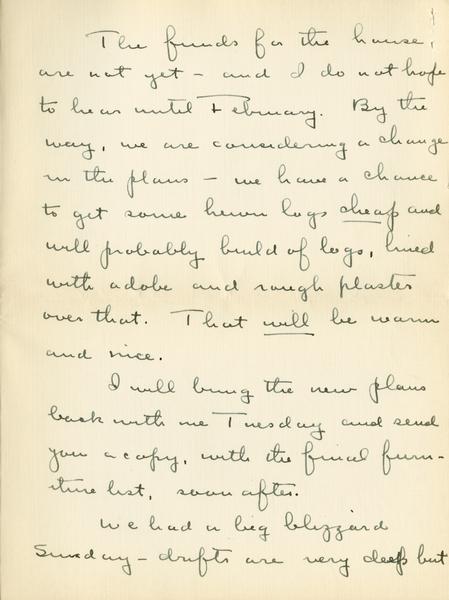 The funds for the house,
are not yet - and I do not hope
to hear until February. By the
way, we are considering a change
in the plans - we have a chance
to get some hewn logs cheap and
will probably build of logs, lined
with adobe and rough plaster
over that. That will be warm
and nice.
I will bring the new plans
back with me Tuesday and send
you a copy, with the final furn-
iture list, soon after.
We had a big blizzard
Sunday - drifts are very deep but